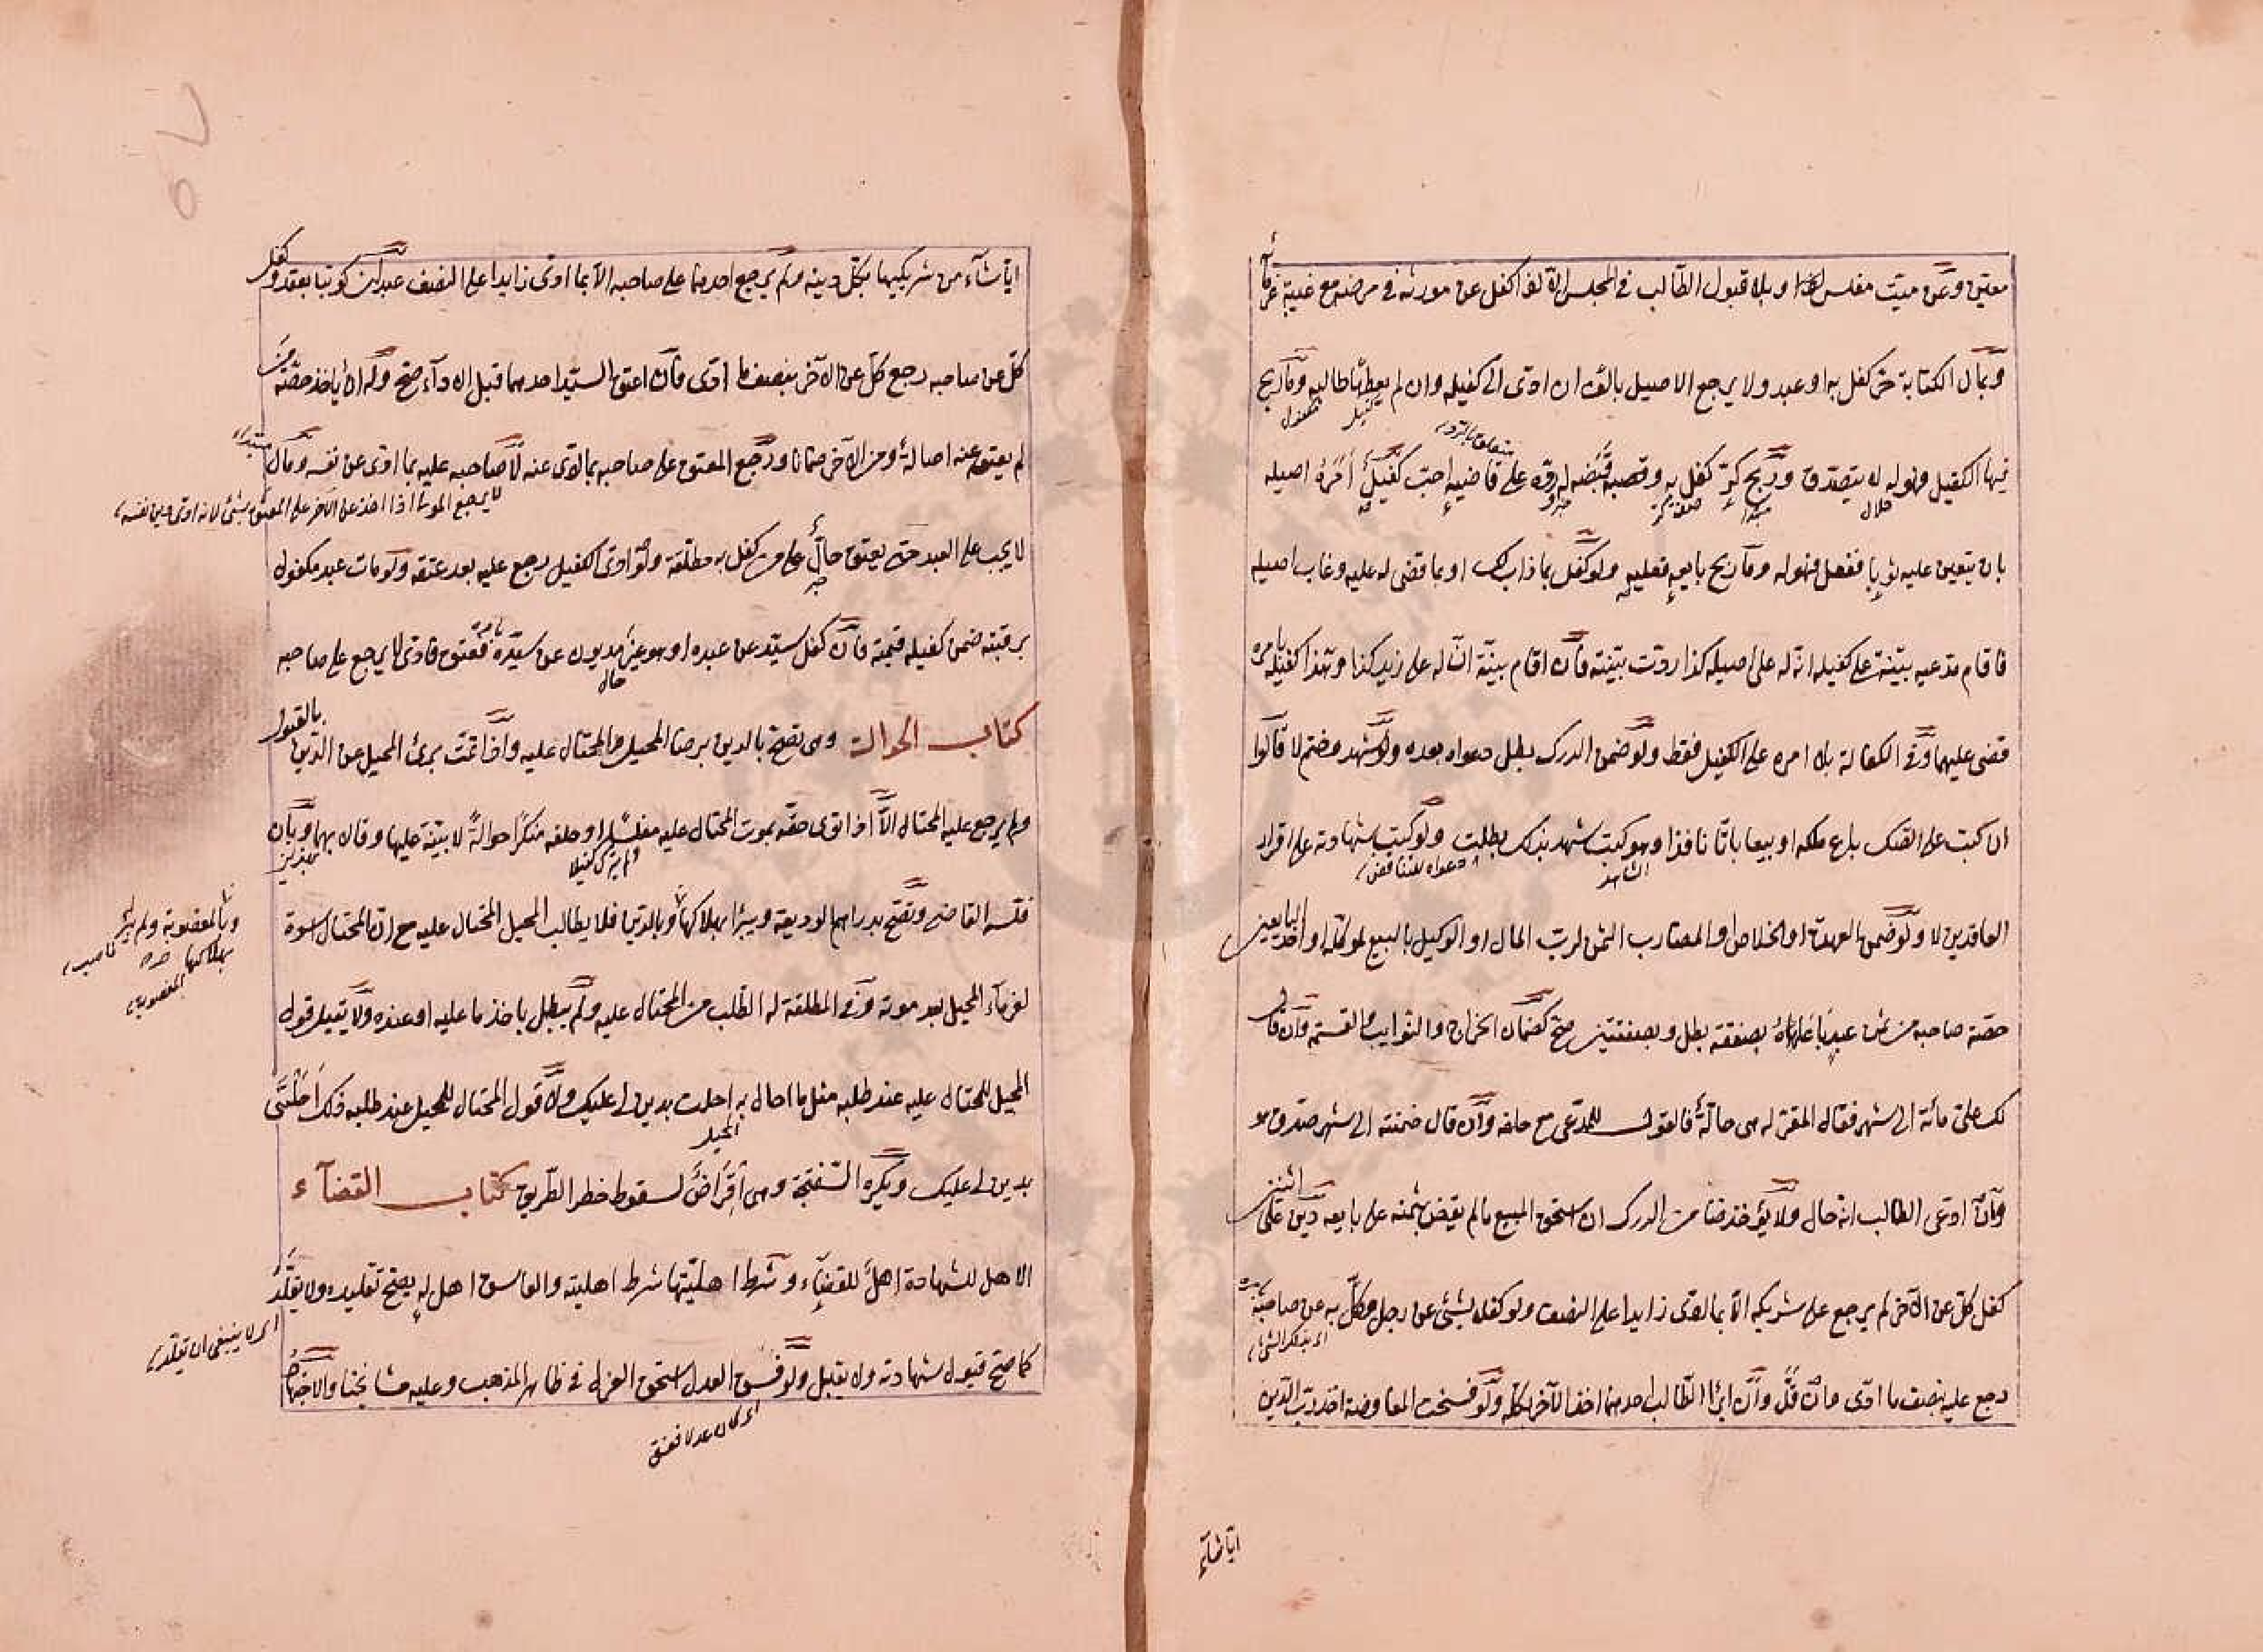 معين وعن ميت مفلس وبلا قبول الطالب في المجلس الا اذا كفل عن مورثه في مرضه مع غيبة غرمآ
ئه
وبمال الكتابة حر كفل به او عبد ولا يرجع الاصيل بالف ان ادى الى كفيله وان لم يعطها طالبه وما ربح
كفيل
مكفول
متعلق بالرد
فيها الكفيل فهو له لا يتصدق وربح كر كفل به وقبضه له رده على قاضيه احب كفيل امره اصيله
حلال
مبتدأ
صفة كر
خبره
بان يتعين عليه ثوبا ففعل فهو له وما ربح بايعه فعليه ولو كفل بما ذاب لك او بما قضى له عليه وغاب اصيله
فاقام مدعيه بينة على كفيله ان له على اصيله كذا ردت بينته فان اقام بينة ان له على زيد كذا وهذا كفيله بامره
قضى عليهما وفي الكفالة بلا امره على الكفيل فقط ولو ضمن الدرك بطل دعواه بعده ولو شهد وختم لا قالوا
ان كتب على الصك باع ملكه او بيعا باتا نافذا وهو كتب شهد بذلك بطلت ولو كتب شهادته على اقرار
الشاهد
دعواه للتناقض
العاقدين لا ولو ضمن العهدة او الخلاص او المضارب الثمن لرب المال او الوكيل بالبيع لموكله او احد البايعين
حصة صاحبه من ثمن عبد باعاه بصفقة بطل وبصفقتين صح كضمان الخراج والنوايب والقسمة وان قال
لك علي مائة الى شهر فقال المقر له هى حالة فالقول للمدعى مع حلفه وان قال ضمنته الى شهر صدق هو
وان ادعى الطالب انه حال ولا يؤخذ ضامن الدرك ان استحق المبيع ما لم يقض بثمنه على بايعه دين على اثنين
كفل كل عن الآخر لم يرجع على شريكه الا بما ادى زايدا على النصف ولو كفلا بشئ عن رجل وكل به عن صاحبه
اى بذلك الشئ
رجع عليه بنصف ما ادى وان قل وان ابرأ الطالب احدهما اخذ الآخر بكله ولو فسخت المفاوضة اخذ رب الدين
ايا شآء
ايا شآء من شريكيها بكل دينه ولم يرجع احدهما على صاحبه الا بما ادى زايدا على النصف عبدان كوتبا بعقد وكفل
كل عن صاحبه رجع كل عن الآخر بنصف ما ادى فان اعتق السيد احدهما قبل الادآء صح وله ان ياخذ حصة من
لم يعتق عنه اصالة ومن الآخر ضمانا ورجع المعتق على صاحبه بما ادى عنه لا صاحبه عليه بما ادى عن نفسه ومال
مبتدأ
لا يرجع المولى اذا اخذ عن الآخر على المعتق بشئ لانه ادى دين نفسه
لا يجب على العبد حتى يعتق حال على من كفل به مطلقة ولو ادى الكفيل رجع عليه بعد عتقه ولو مات عبد مكفول
خبر
برقبته ضمن كفيله قيمته فان كفل سيد عن عبده او هو غير مديون عن سيده فعتق فادى لا يرجع على صاحبه
بامره
حال
كتاب الحوالة وهى تصح بالدين برضا المحيل والمحتال عليه واذا تمت برئ المحيل عن الدين بالقبول
ولم يرجع عليه المحتال الا اذا توى حقه بموت المحتال عليه مفلسا او حلفه منكرا حوالة لا بينة عليها وقالا بهما وبان
ولم يترك كفيلا
بهذين
فلسه القاضى وتصح بدراهم الوديعة ويبرأ بهلاكها وبالدين فلا يطالب المحيل المحتال عليه مع ان المحتال اسوة
وبالمغصوبة ولم يبرأ
بهلاكها
غاصب
المغصوبة
لغرمآء المحيل بعد موته وفي المطلقة له الطلب من المحتال عليه ولم يبطل باخذ ما عليه او عنده ولا يقبل قول
المحيل للمحتال عليه عند طلبه مثل ما احال به احلت بدين لى عليك ولا قول المحتال للمحيل عند طلبه ذلك احلتنى
المحيل
بدين لى عليك ويكره السفتجة وهى اقراض لسقوط خطر الطريق كتاب القضآء
الاهل للشهادة اهل للقضآء وشرط اهليتها شرط اهليته والفاسق اهل له يصح تقليده ولا يقلد
اى لا ينبغى ان تقلد
كما صح قبول شهادته ولا يقبل ولو فسق العدل استحق العزل في ظاهر المذهب وعليه مشايخنا والاجتهاد
اى كان عدلا ففسق